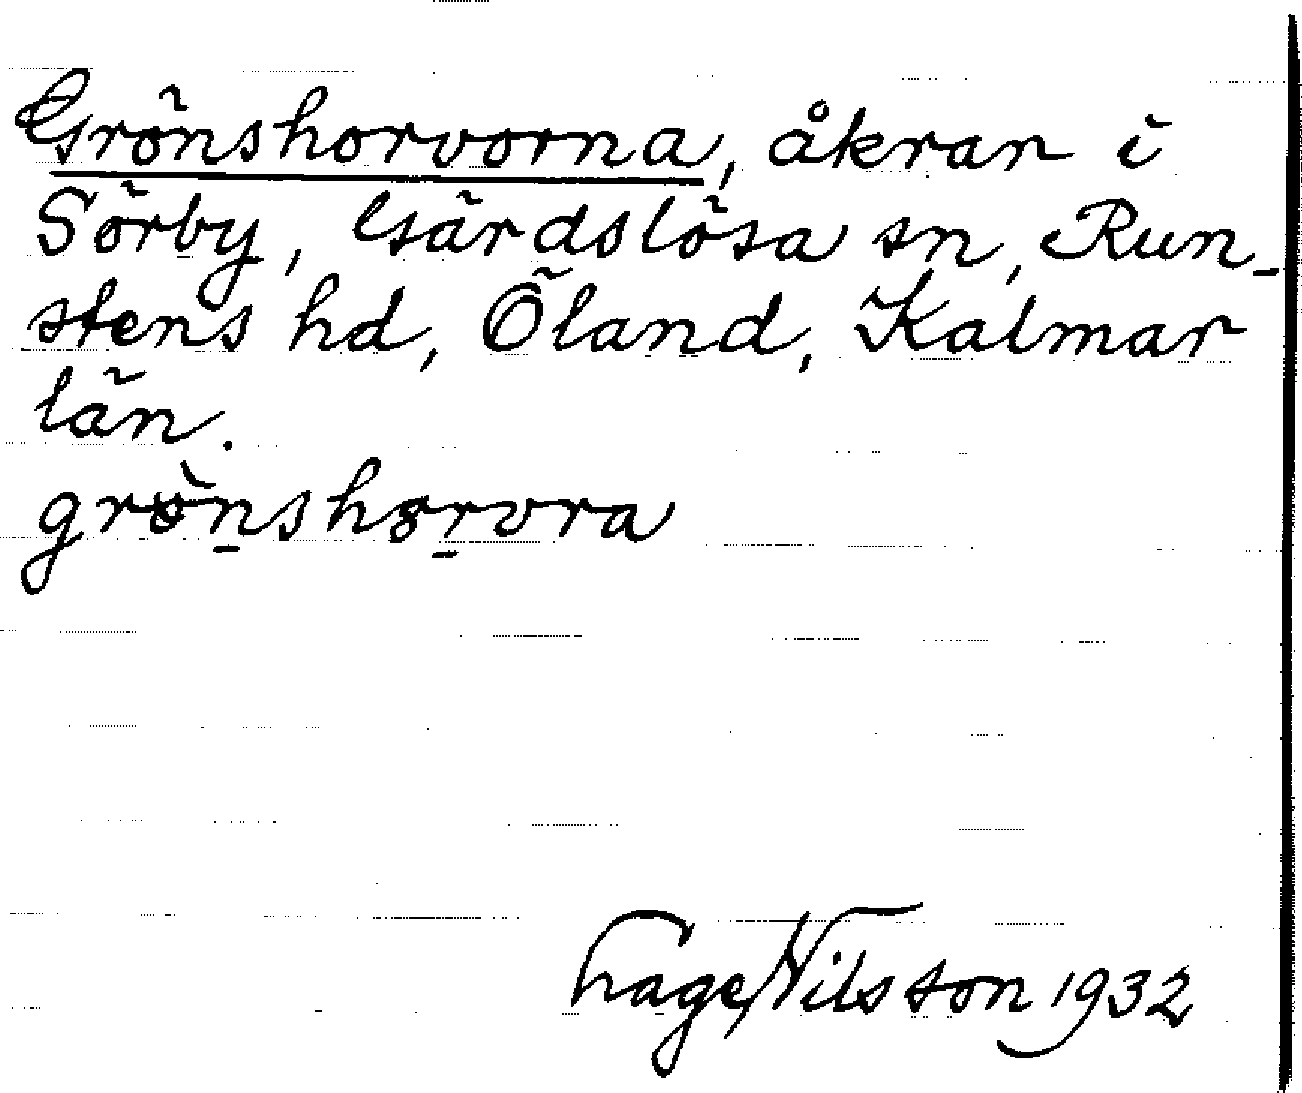 Grönshorvorna, åkrar i
Sörby, Gärdslösa sn, Run-
stens hd, Öland, Kalmar
län.
grönshorvra
Hage Nilsson 1932